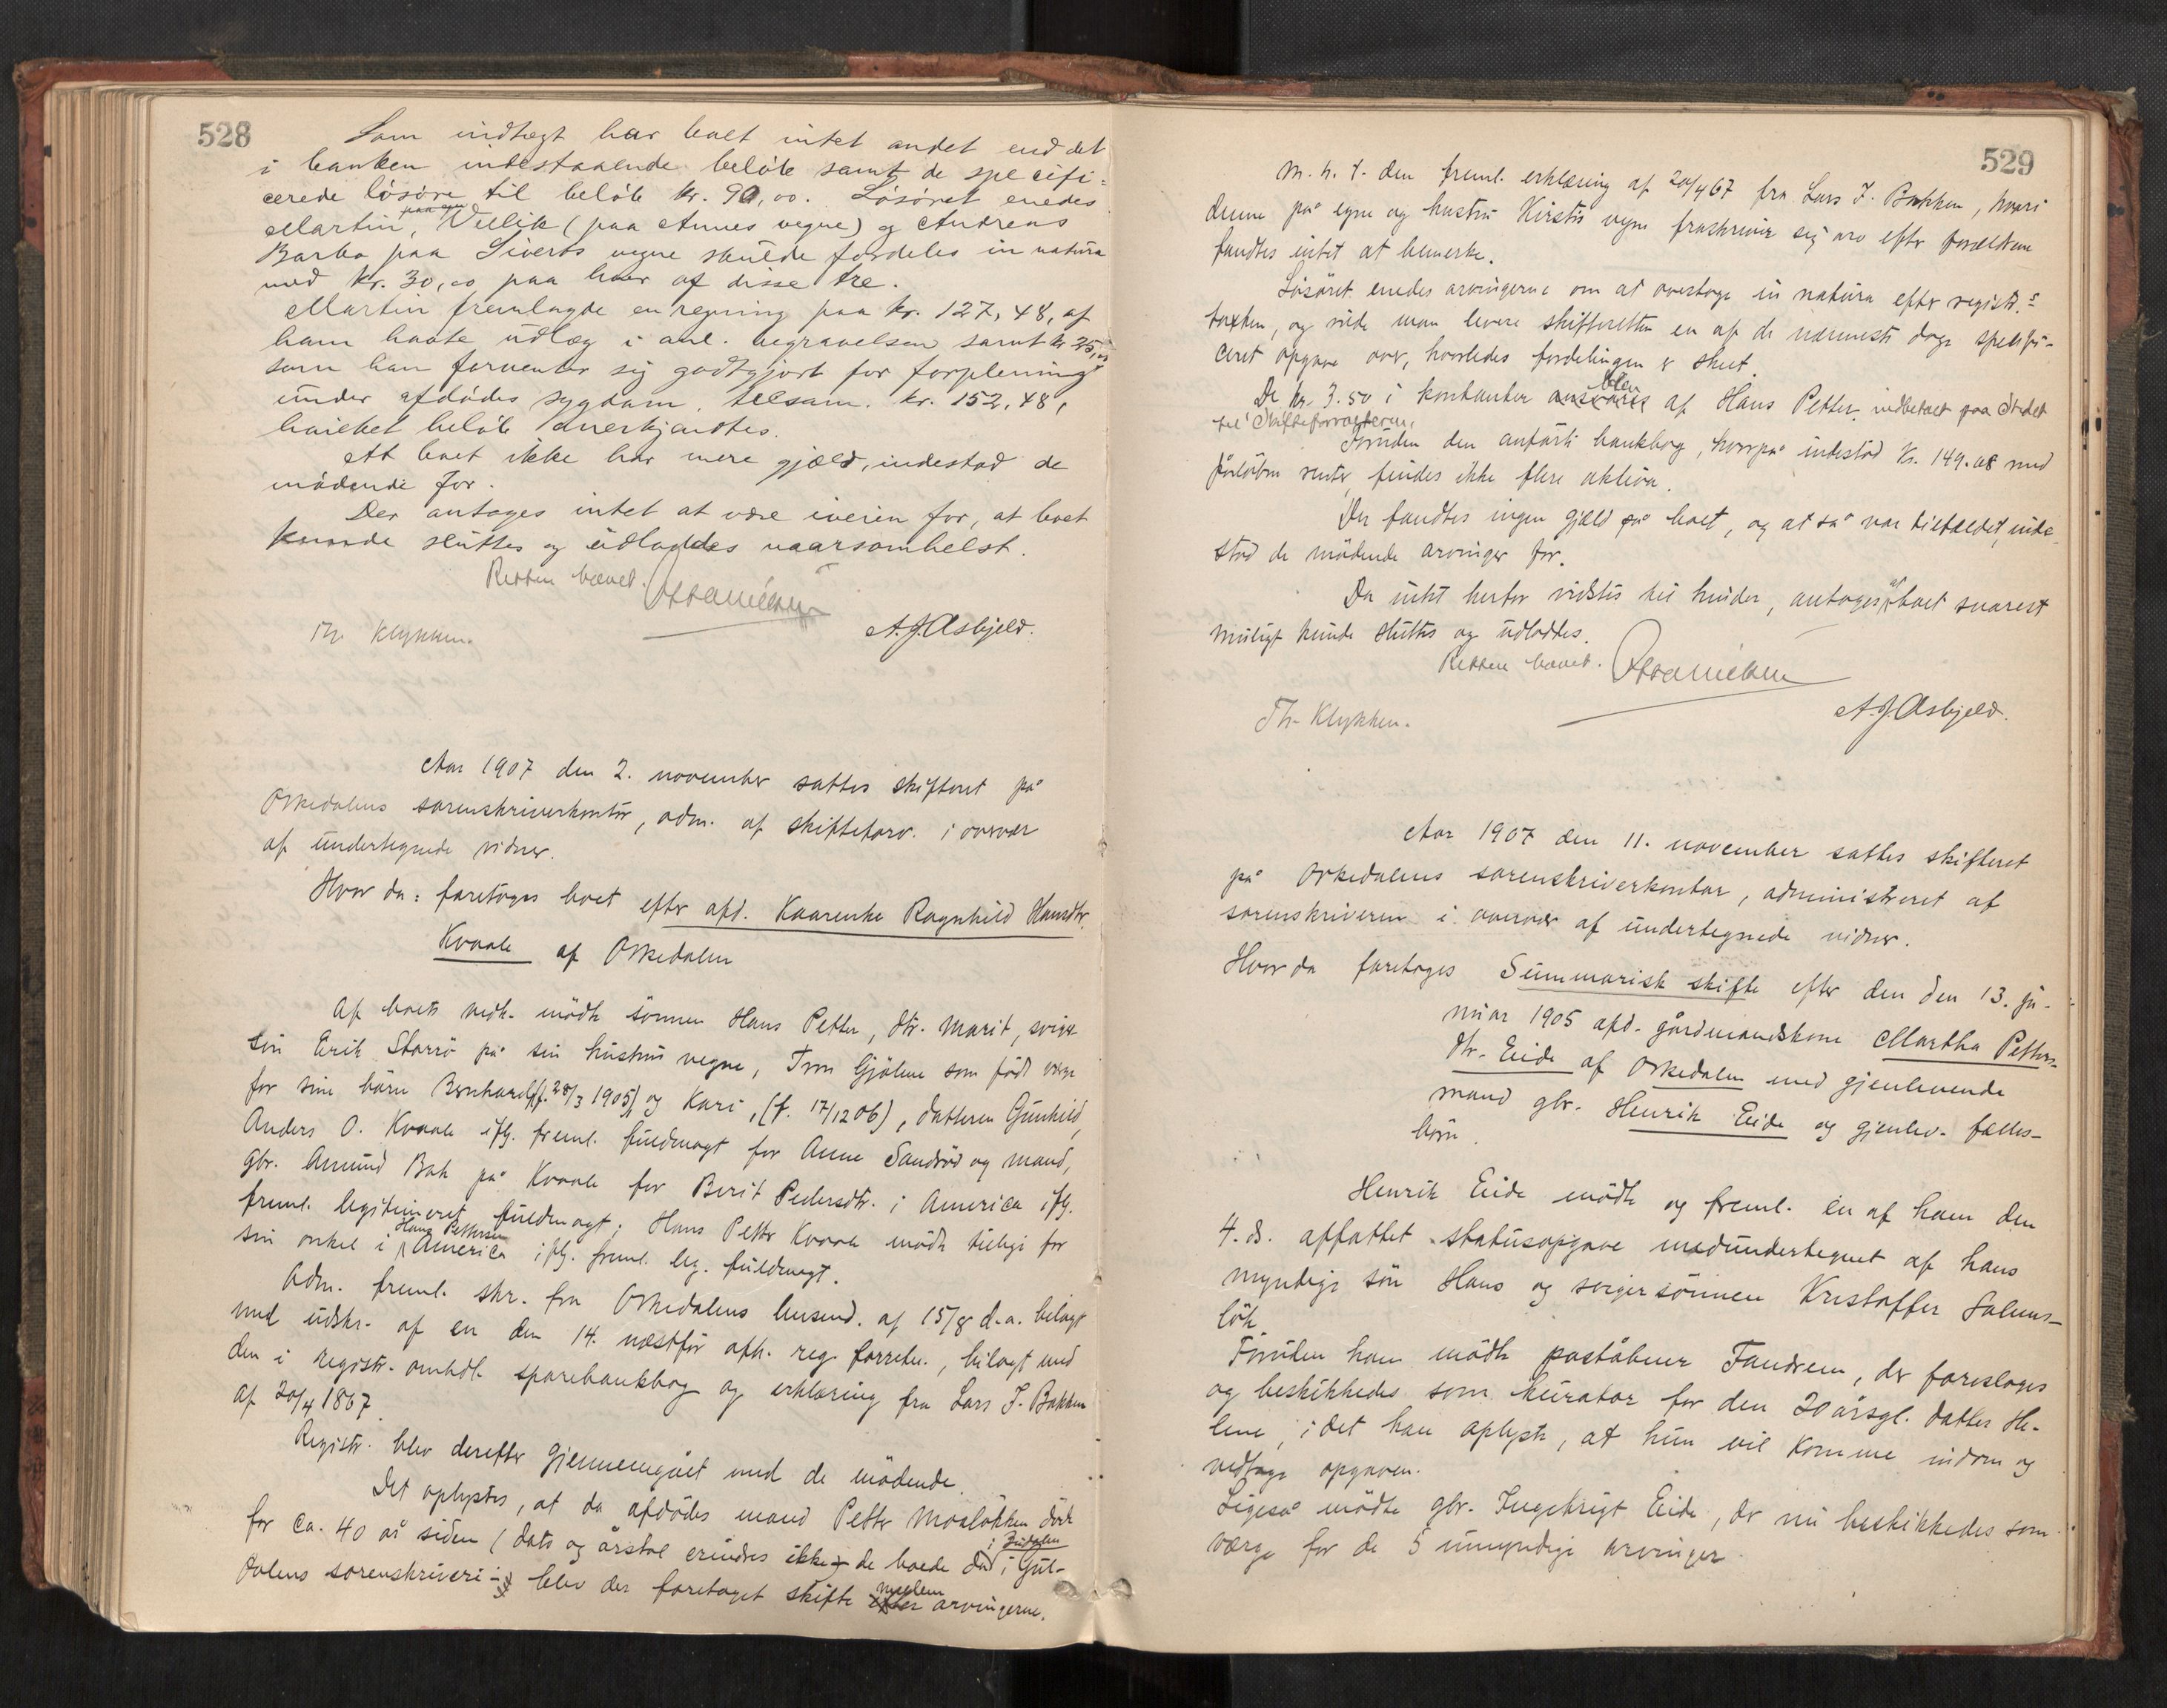 528
Som indtægt har boet intet andet end det
i banken indestaaende beløb samt de specifi=
cerede løsøre til beløb kr. 90,00. Løsøret enedes
paa egne
Martin, Vellik (paa Annes vegne) og Andreas
Barbo paa Siverts vegne skulde fordeles in natura
med kr. 30,00 paa hver af disse tre.
Martin fremlagde en regning paa kr. 127,48, af
ham havte udlæg i anl. begravelsen samt kr 25,00
som han forventer sig godtgjort for forplening
under afdødes sygdom, tilsam. kr. 152,48,
hvilket beløb anerkjendtes.
At boet ikke har mere gjæld, indestod de
mødende for.
Der antages intet at være iveien for, at boet
kunde sluttes og udloddes naarsomhelst.
Retten hævet.
Th. Klykken.
A. J. Asbjeld.
Aar 1907 den 2. november sattes skifteret på
Orkedalens sorenskriverkontor, adm. af skifteforv. i overvær
af undertegnede vidner.
Hvor da: foretoges boet efter afd. Kaarenhe Ragnhild Hansdtr.
Kvaale af Orkedalen
Af boets vedk. mødte sønnen Hans Petter, dtr. Marit, sviger
søn Erik Storrø på sin hustrus vegne, Iver Gjølme som født verge
for sine børn Bernhard (f. 28/3 1905) og Kari, (f. 17/12 06), datteren Gunhild,
Anders O. Kvaale ifg. freml. fuldmagt for Anne Sandrød og mand,
gbr. Amund Bak på Kvaale for Berit Pedersdtr. i America ifg.
freml. legitimeret fuldmagt; Hans Petter Kvaale mødte tillige for
Hans Pettersen
sin onkel i America ifg. freml. leg. fuldmagt.
Adm. freml. skr. fra Orkedalens lensmd. af 15/8 d.a. bilagt
med udskr. af en den 14. næstfør afh. reg. forretn., bilagt med
den i registr. omhdl. sparebankbog og erklæring fra Lars J. Bakken
af 20/4 1867.
Registr. blev derefter gjennemgået med de mødende.
Det oplystes, at da afdødes mand Petter Moaløkken døde
for ca. 40 år siden (dato og årstal erindres ikke) de boede da i Gul-
i Budalen
dalens sorenskriveri - blev der foretaget skifte efter arvingerne.
mellem
529
m. h. t. den freml. erklæring af 20/4 67 fra Lars J. Bakken, hvori
denne på egne og hustru Kirstis vegne fraskriver sig arv efter forældrene
fandtes intet at bemerke.
Løsøret enedes arvingerne om at overtage in natura efter registr.s
taxten, og vilde man levere skifteretten en af de nærmeste dage spesifi-
ceret opgave over, hvorledes fordelingen er skeet.
blev
De kr. 3.50 i kontanter ansvares af Hans Petter indbetalt paa Stedet
til Skifteforvalteren.
Foruden den anførte bankbog, hvorpå indestod kr. 149.08 med
påløbne renter, findes ikke flere aktiva.
Der fandtes ingen gjæld på boet, og at så var tilfældet, inde-
stod de mødende arvinger for.
Da intet herfor vidstes til hinder, antoges at boet snarest
muligt kunde sluttes og udloddes.
Retten hævet.
Th. Klykken.
A. J. Asbjeld.
Aar 1907 den 11. november sattes skifteret
på Orkedalens sorenskriverkontor, administreret af
sorenskriveren i overvær af undertegnede vidner.
Hvor da foretoges Summarisk skifte efter den den 13. ja-
nuar 1905 afd. gårdmandskone Martha Petters-
dtr. Eide af Orkedalen med gjenlevende
mand gbr. Henrik Eide og gjenlev. fælles-
børn.
Henrik Eide mødte og freml. en af ham den
4. ds. affattet statusopgave medundertegnet af hans
myndige søn Hans og svigersønnen Kristoffer Solems-
løk.
Foruden ham mødte poståbner Fandrem, der foresloges
og beskikkedes som kurator for den 20 årsgl. datter He-
lene, idet han oplyste, at hun vil komme indom og
vedtage opgaven.
Ligeså mødte gbr. Ingebrigt Eide, der nu beskikkedes som
værge for de 5 umyndige arvinger.